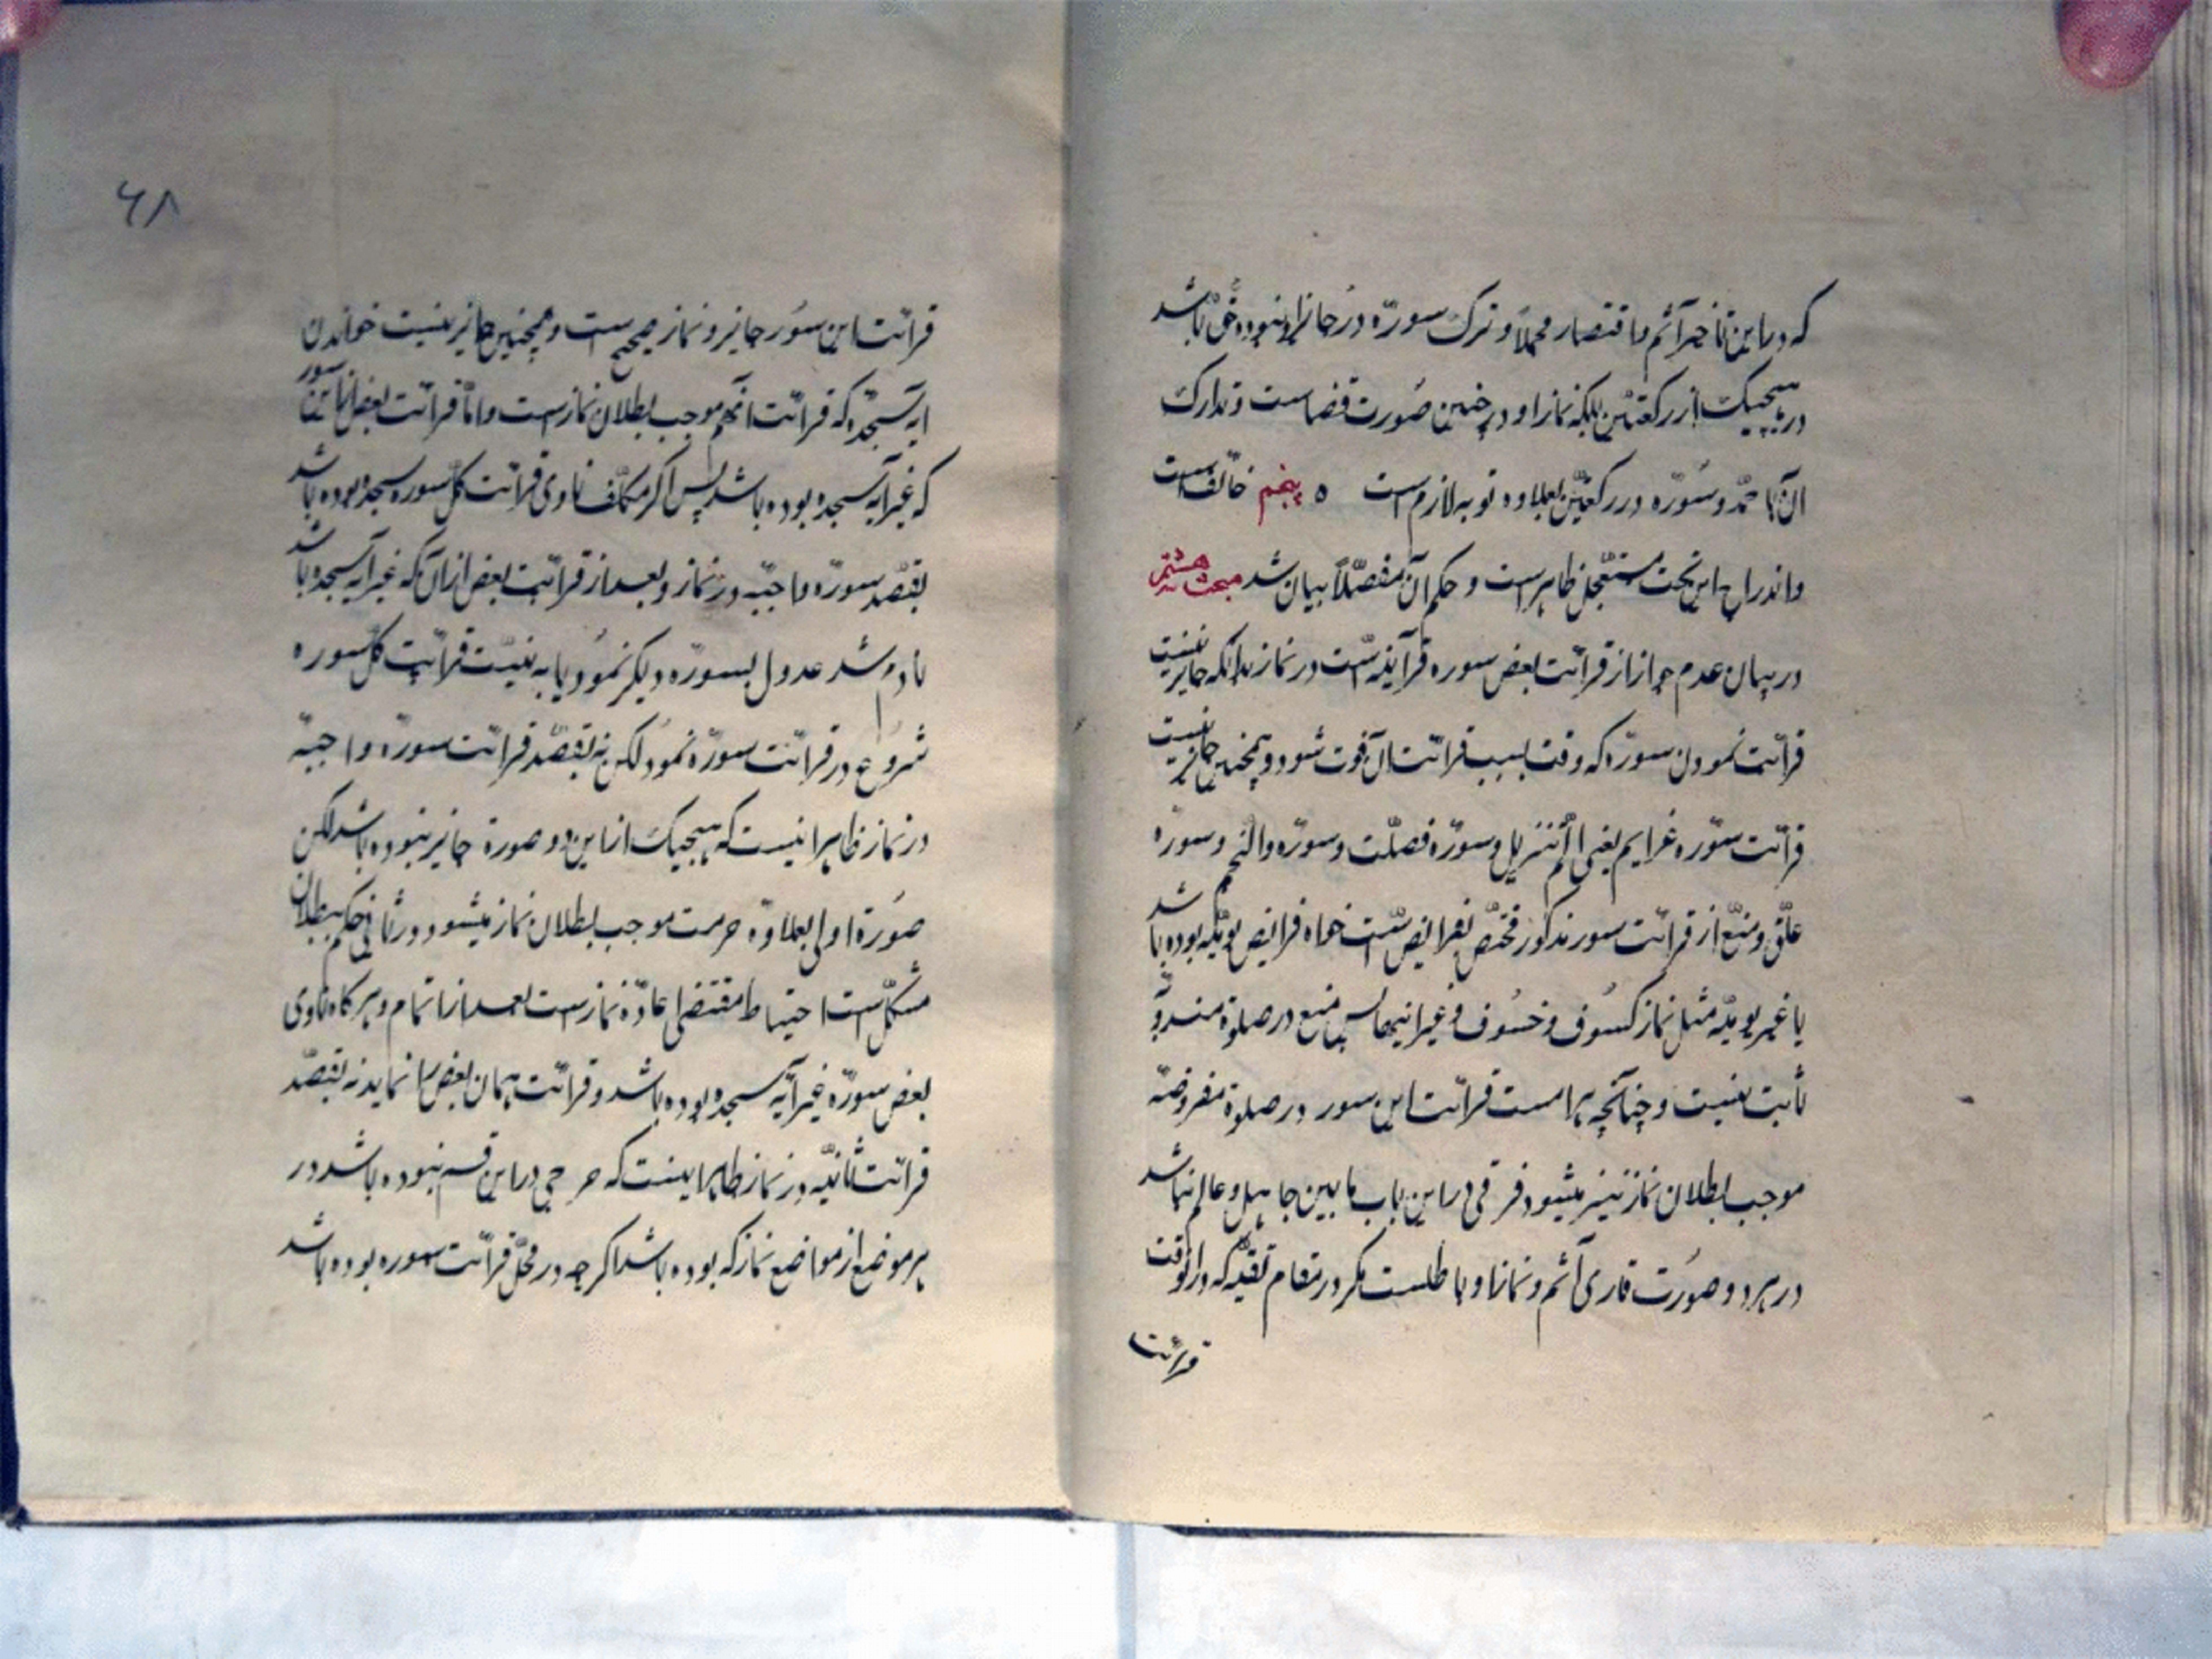 که در این تأخیر آثم و اقتصار محملاً و ترک سوره در جایز نبوده باشد
در هیچیک از رکعتین بلکه نماز او در چنین صورت قضاست و تدارک
آن با حمد و سوره در رکعتین بعلاوه توبه لازم است ه پنجم خائف است
و اندراج این تحت مستعجل ظاهر است و حکم آن مفصّلاً بیان شد مبحث هشتم
در بیان عدم جواز از قرائت بعض سوره قرآنیه است در نماز بدانکه جایز نیست
قرائت نمودن سوره که وقت بسبب قرائت آن فوت شود و همچنین جایز نیست
قرائت سوره عزایم یعنی الم تنزیل و سوره فصلت و سوره والنجم و سوره
علق و منع از قرائت سور مذکور مختص بفرایض است خواه فرایض یومیّه بوده باشد
یا غیر یومیّه مثل نماز کسوف و خسوف و غیر اینها پس منع در صلوة مندوبه
ثابت نیست و چنانچه حرامست قرائت این سور در صلوة مفروضه
موجب بطلان نماز نیز میشود فرقی در این باب مابین جاهل و عالم نباشد
در هر دو صورت قاری آثم و نماز او باطلست مگر در مقام تقیّه که در آنوقت
قرائت
۶۸
قرائت این سور جایز و نماز صحیح است و همچنین جایز نیست خواندن
آیه سجده که قرائت آنهم موجب بطلان نماز است و امّا قرائت بعض از این سور
که غیر آیه سجده بوده باشد پس اگر مکلّف ناوی قرائت کلّ سوره سجده بوده باشد
بقصد سوره واجبه در نماز و بعد از قرائت بعض از آن که غیر آیه سجده باشد
نادم شد عدول بسوره دیگر نمود یا به نیّت قرائت کلّ سوره
شروع در قرائت سوره نمود لکن نه بقصد قرائت سوره واجبه
در نماز ظاهر اینست که هیچیک از این دو صورة جایز نبوده باشد لکن
صورة اولی بعلاوه حرمت موجب بطلان نماز میشود و در ثانی حکم ببطلان
مشکل است احتیاط مقتضی اعاده نماز است بعد از اتمام و هر گاه ناوی
بعض سوره غیر آیه سجده بوده باشد و قرائت همان بعض را نماید نه بقصد
قرائت ثانیه در نماز ظاهر اینست که حرجی در این قسم نبوده باشد در
هر موضع از مواضع نماز که بوده باشد اگر چه در محلّ قرائت سوره بوده باشد